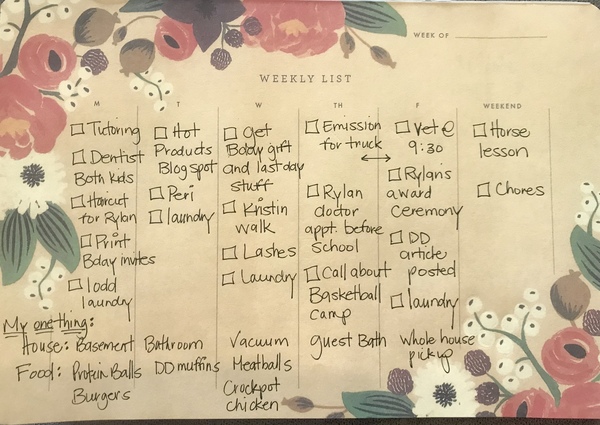 WEEK OF
WEEKLY LIST
M
Tutoring
Dentist
Both kids
Haircut
for Rylan
Print
Bday invites
load
laundry
T
Hot
Products
Blog spot
Peri
laundry
W
Get
Bday gift
and last day
stuff
Kristin
walk
Lashes
Laundry
TH
Emission
for truck
Rylan
doctor
appt. before
School
Call about
Basketball
camp
F
Vet @
9:30
Rylan's
award
Ceremony
DD
article
posted
laundry
WEEKEND
Horse
lesson
Chores
My one thing:
House: Basement Bathroom Vacuum guest Bath whole house
pickup
Food: Protein Balls DD muffins Meatballs
Burgers Crockpot
chicken